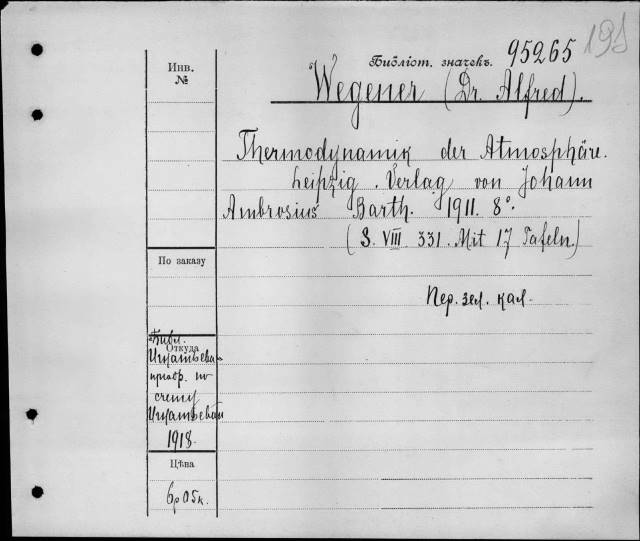 195
Библіот. значекъ. 95265
Инв.
№
Wegener (Dr. Alfred).
Thermodynamik der Atmosphäre.
Leipzig. Verlag von Johann
Ambrosius Barth. 1911. 8°.
(S. VIII 331. Mit 17 Tafeln.)
По заказу
Пер. зел. кал.
Библ.
Откуда
Игнатьева
приобр. по
счету
Игнатьевой
1918.
Цѣна
6р 05к.